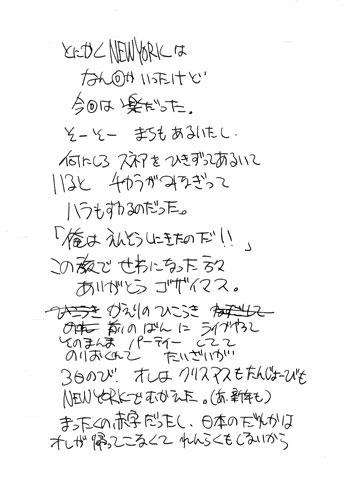 とにかく NEWYORKは
なん回かいったけど
今回は 楽だった。
そーそー まちもあるいたし.
何にしろ スネアを ひきずってあるいて
いると チカラがみなぎって
ハラもすわるのだった。
「俺は えんそうしにきたのだ!!」
この場で せわになった 方々
ありがとう ゴザイマス。
ひこうき かえりの ひこうき
前のばんに ライブやって
そのまんま パーティーしてて
のりおくれて たいざいが
3日のび. オレは クリスマスもたんじょーびも
NEWYORKでむかえた。(あ.新年も)
まったくの赤字だったし. 日本のだれかは
オレが帰ってこなくて れんらくもしないから